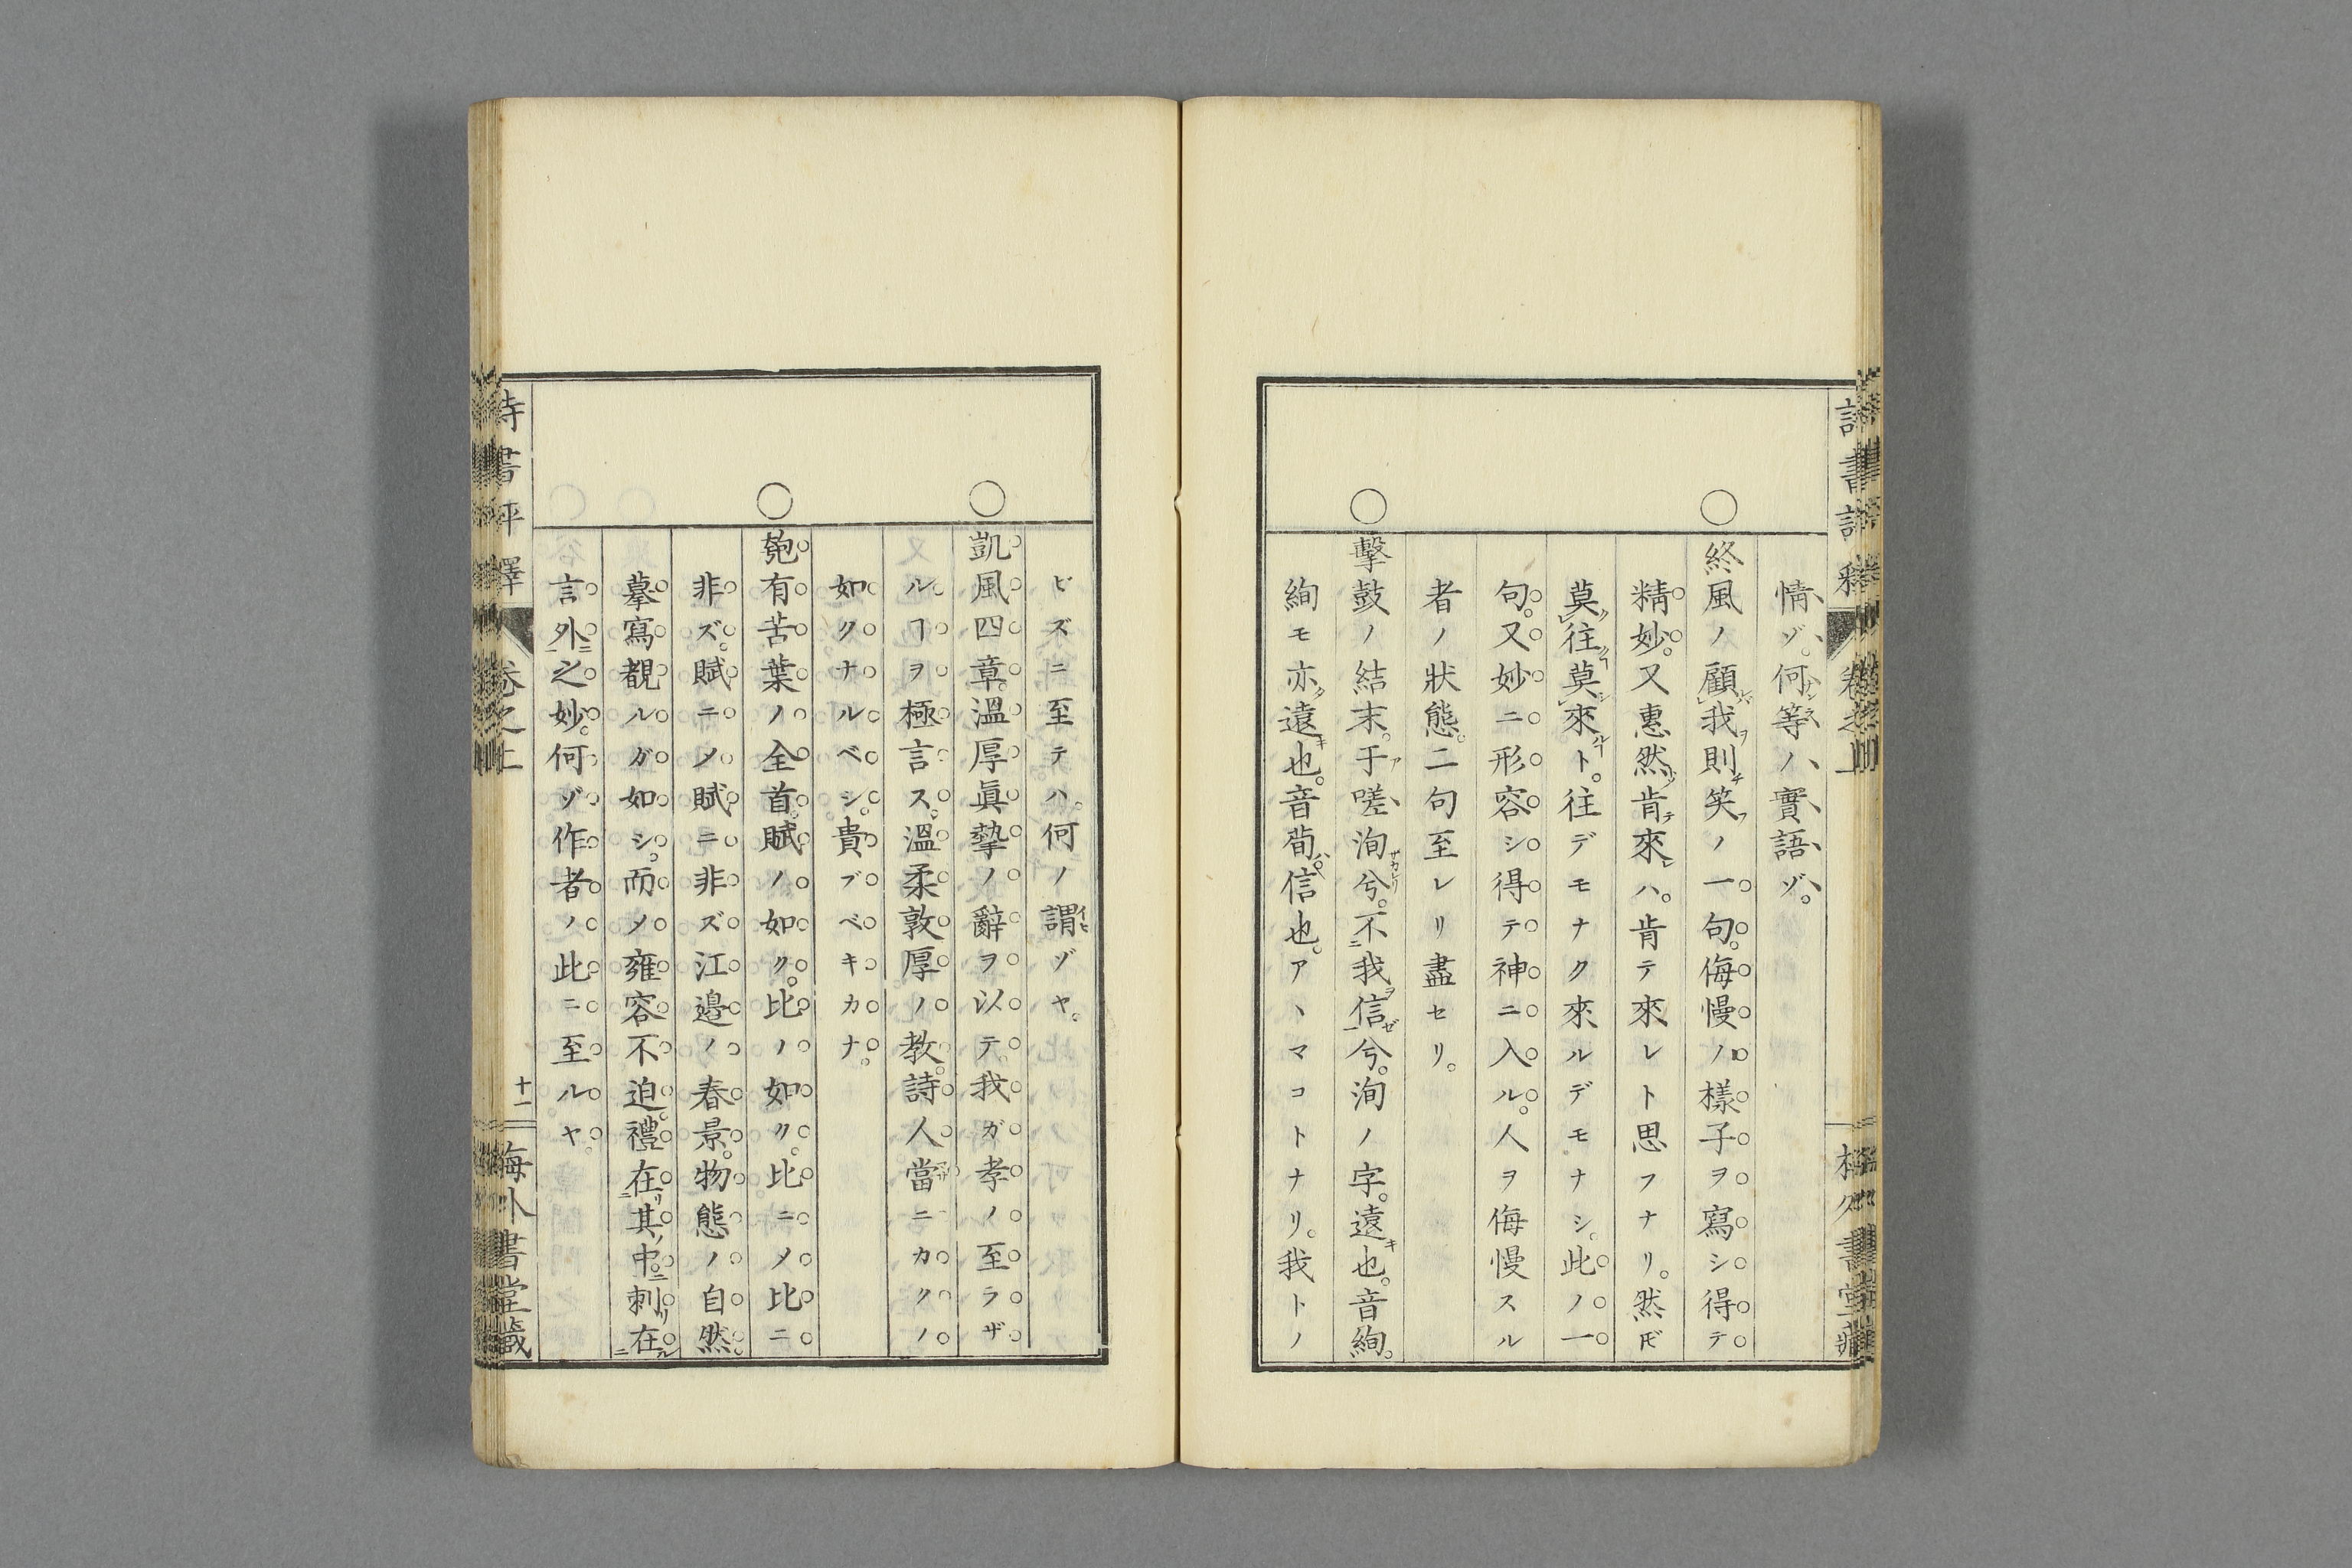 情ゾ。何等ノ實語ゾ。
終風ノ顧我則笑ノ一句。侮慢ノ樣子ヲ寫シ得テ
精妙。又惠然肯來ハ。肯テ來レト思フナリ。然𪜈
莫往莫來ト。往デモナク來ルデモナシ。此ノ一
句。又妙ニ形容シ得テ神ニ入ル。人ヲ侮慢スル
者ノ狀態。二句至レリ盡セリ。
擊鼓ノ結末。于嗟洵兮。不我信兮。洵ノ字。遠也。音絢。
絢モ亦遠也。音荀ハ。信也。アヽマコトナリ。我トノ
詩書評釋
卷之上
ビズニ至テハ。何ノ謂ゾヤ。
凱風四章。溫厚眞摯ノ辭ヲ以テ。我ガ孝ノ至ラザ
ルヿヲ極言ス。溫柔敦厚ノ教。詩人當ニカクノ
如クナルベシ。貴ブベキカナ。
匏有苦葉ノ全首。賦ノ如ク。比ノ如ク。比ニ〆比ニ
非ズ。賦ニ〆賦ニ非ズ江邉ノ春景。物態ノ自然。
摹寫覩ルガ如シ。而〆雍容不迫禮在其中。刺在
言外之妙。何ゾ作者ノ此ニ至ルヤ。
詩書評釋
卷之上
十一
海外書堂藏